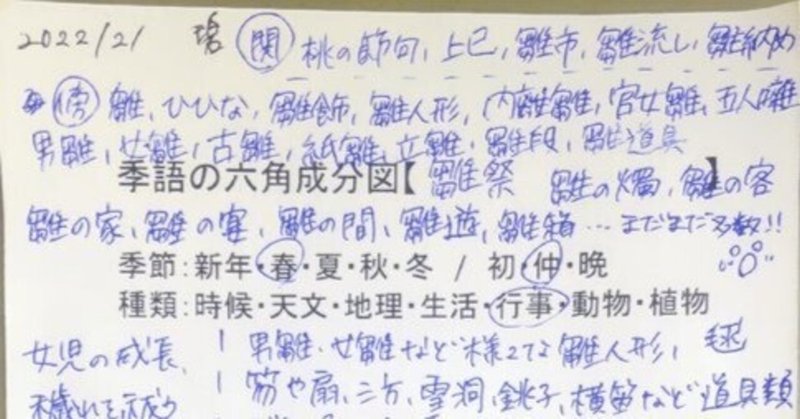 2022/21 関 桃の節句、上巳、雛市、雛流し、雛納め
傍 雛、ひひな、雛飾、雛人形、内雛、官女雛、五人囃
男雛、女雛、古雛、紙雛、立雛、雛段、雛道具
季語の六角成分図【雛祭】 雛の燭、雛の客
雛の家、雛の宴、雛の間、雛遊、雛箱…まだまだ多数!!
季節:新年・春・夏・秋・冬 / 初・仲・晩
種類:時候・天文・地理・生活・行事・動物・植物
女児の成長、 男雛・女雛など様々な雛人形、毬
穢れを祓う 笏や扇、三方、雪洞、銚子、横笛など道具類